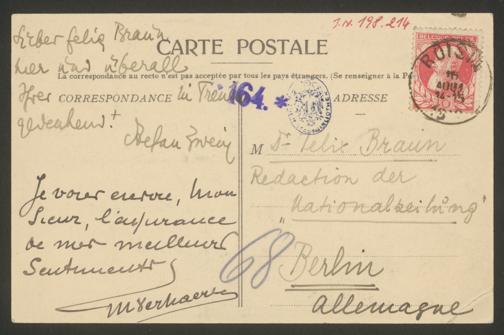 J.N. 198.214
Lieber Felix Braun
hier und überall
CARTE POSTALE
La correspondance au recto n'est pas acceptée par tous les pays étrangers. (Se renseigner à la
CORRESPONDANCE
ADRESSE
Ihrer in Treue
gedenkend
Stefan Zweig
64. *
ROISIN
M Dr Felix Braun
Redaction der
"Nationalzeitung"
Berlin
Allemagne
68
Je vous envoie, Mon
sieur, l'assurance
de mes meilleurs
sentiments
M Verhaeren